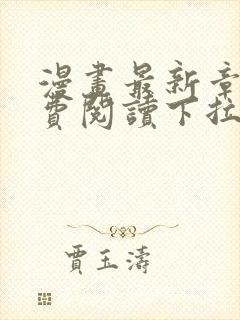 漫畫最新章
費閱讀下拉
賈玉濤